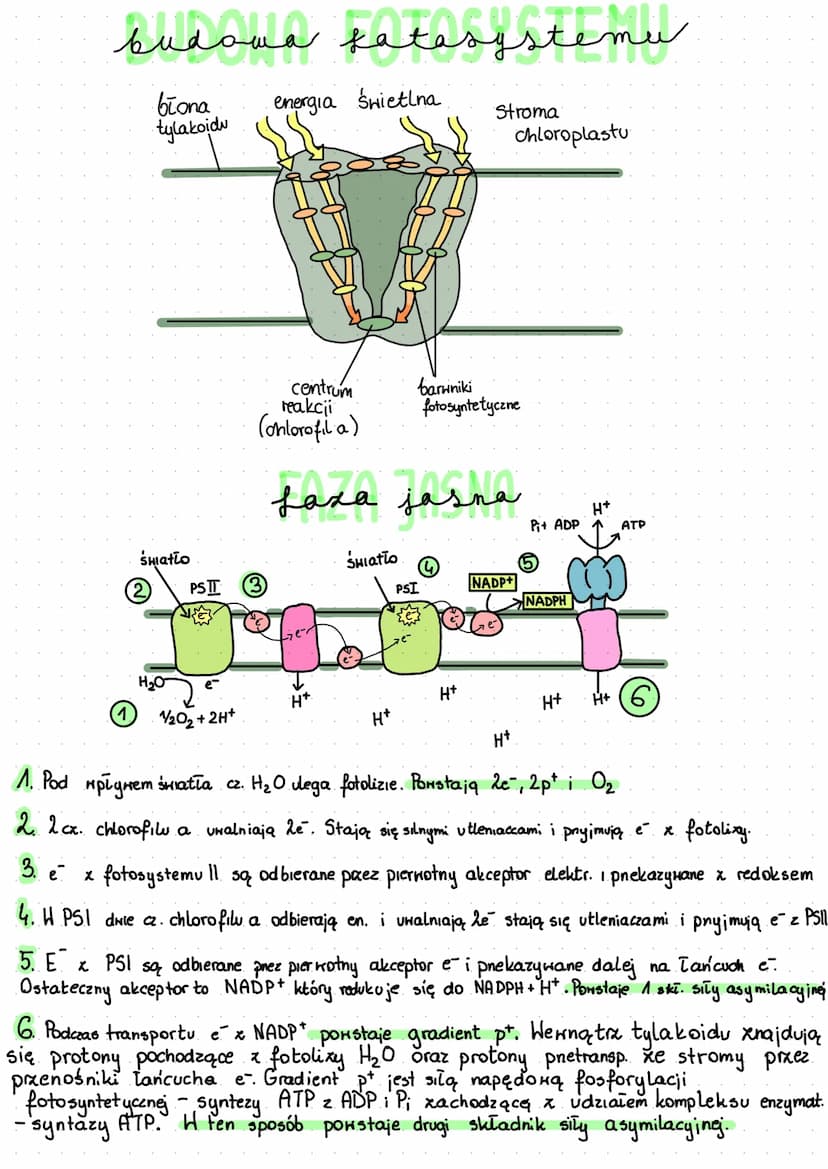 budowa fotosystemu
błona
tylakoidu
energia świetlna
Stroma
chloroplastu
centrum
reakcji
(chlorofil a)
barwniki
fotosyntetyczne
faza jasna
H+
Pi+ ADP
ATP
światło
światło
2
PSII
3
PSI
4
5
NADP+
NADPH
e-
e-
e-
e-
e-
e-
e-
e-
H2O
e-
1
1/2O2 + 2H+
H+
H+
H+
H+
H+
H+
6
1. Pod wpływem światła cz. H2O ulega fotolizie. Powstają 2e-, 2p+ i O2
2. 2cz. chlorofilu a uwalniają 2e-. Stają się silnymi utleniaczami i przyjmują e- z fotolizy.
3. e- z fotosystemu II są odbierane przez pierwotny akceptor elektr. i przekazywane z redoksem
4. W PSI dwie cz. chlorofilu a odbierają en. i uwalniają 2e- stają się utleniaczami i przyjmują e- z PSII
5. E- z PSI są odbierane przez pierwotny akceptor e- i przekazywane dalej na łańcuch e-.
Ostateczny akceptor to NADP+ który redukuje się do NADPH + H+. Powstaje 1 skł. siły asymilacyjnej
6. Podczas transportu e- z NADP+ powstaje gradient p+. Wewnątrz tylakoidu znajdują
się protony pochodzące z fotolizy H2O oraz protony przetransp. ze stromy przez
przenośniki łańcucha e-. Gradient p+ jest siłą napędową fosforylacji
fotosyntetycznej - syntezy ATP z ADP i Pi zachodzącej z udziałem kompleksu enzymat.
- syntazy ATP. W ten sposób powstaje drugi składnik siły asymilacyjnej.